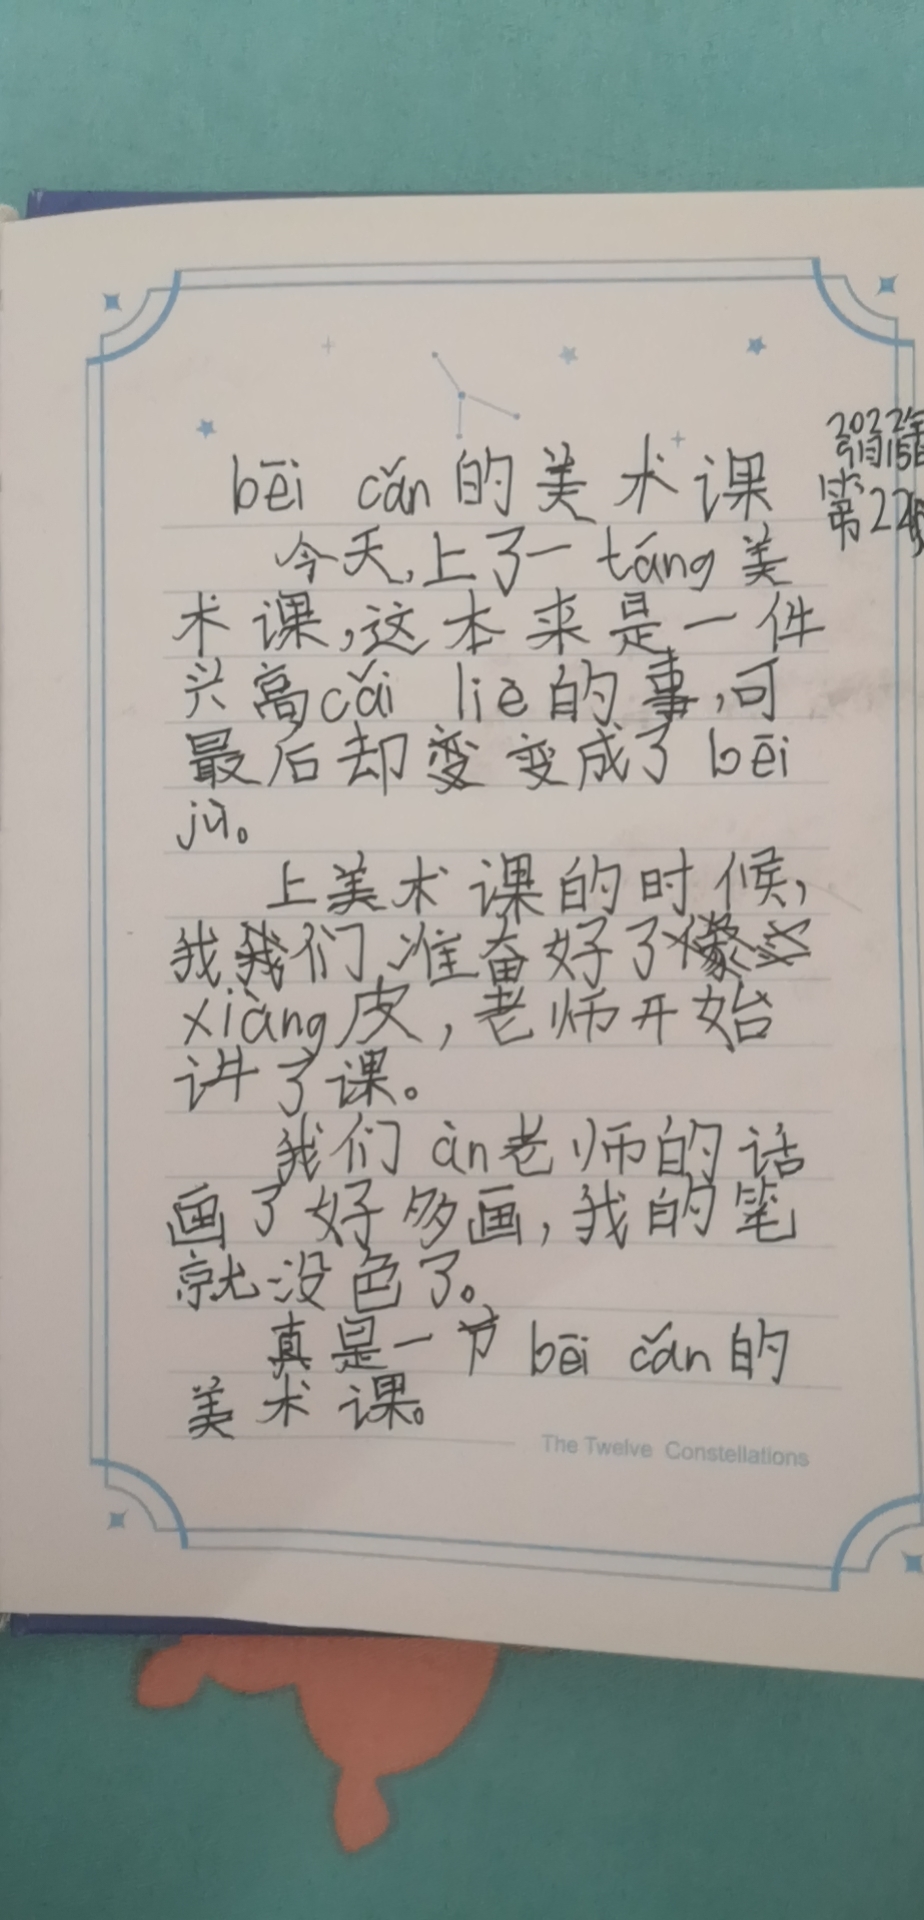 2022年
9月15日
第22
bēi cǎn的美术课
今天,上了一táng美
术课,这本来是一件
兴高cǎi liè的事,可
最后却变变成了bēi
jù。
上美术课的时候,
我我们准备好了
xiàng皮,老师开始
讲了课。
我们àn老师的话
画了好多画,我的笔
就没色了。
真是一节bēi cǎn的
美术课。
The Twelve Constellations